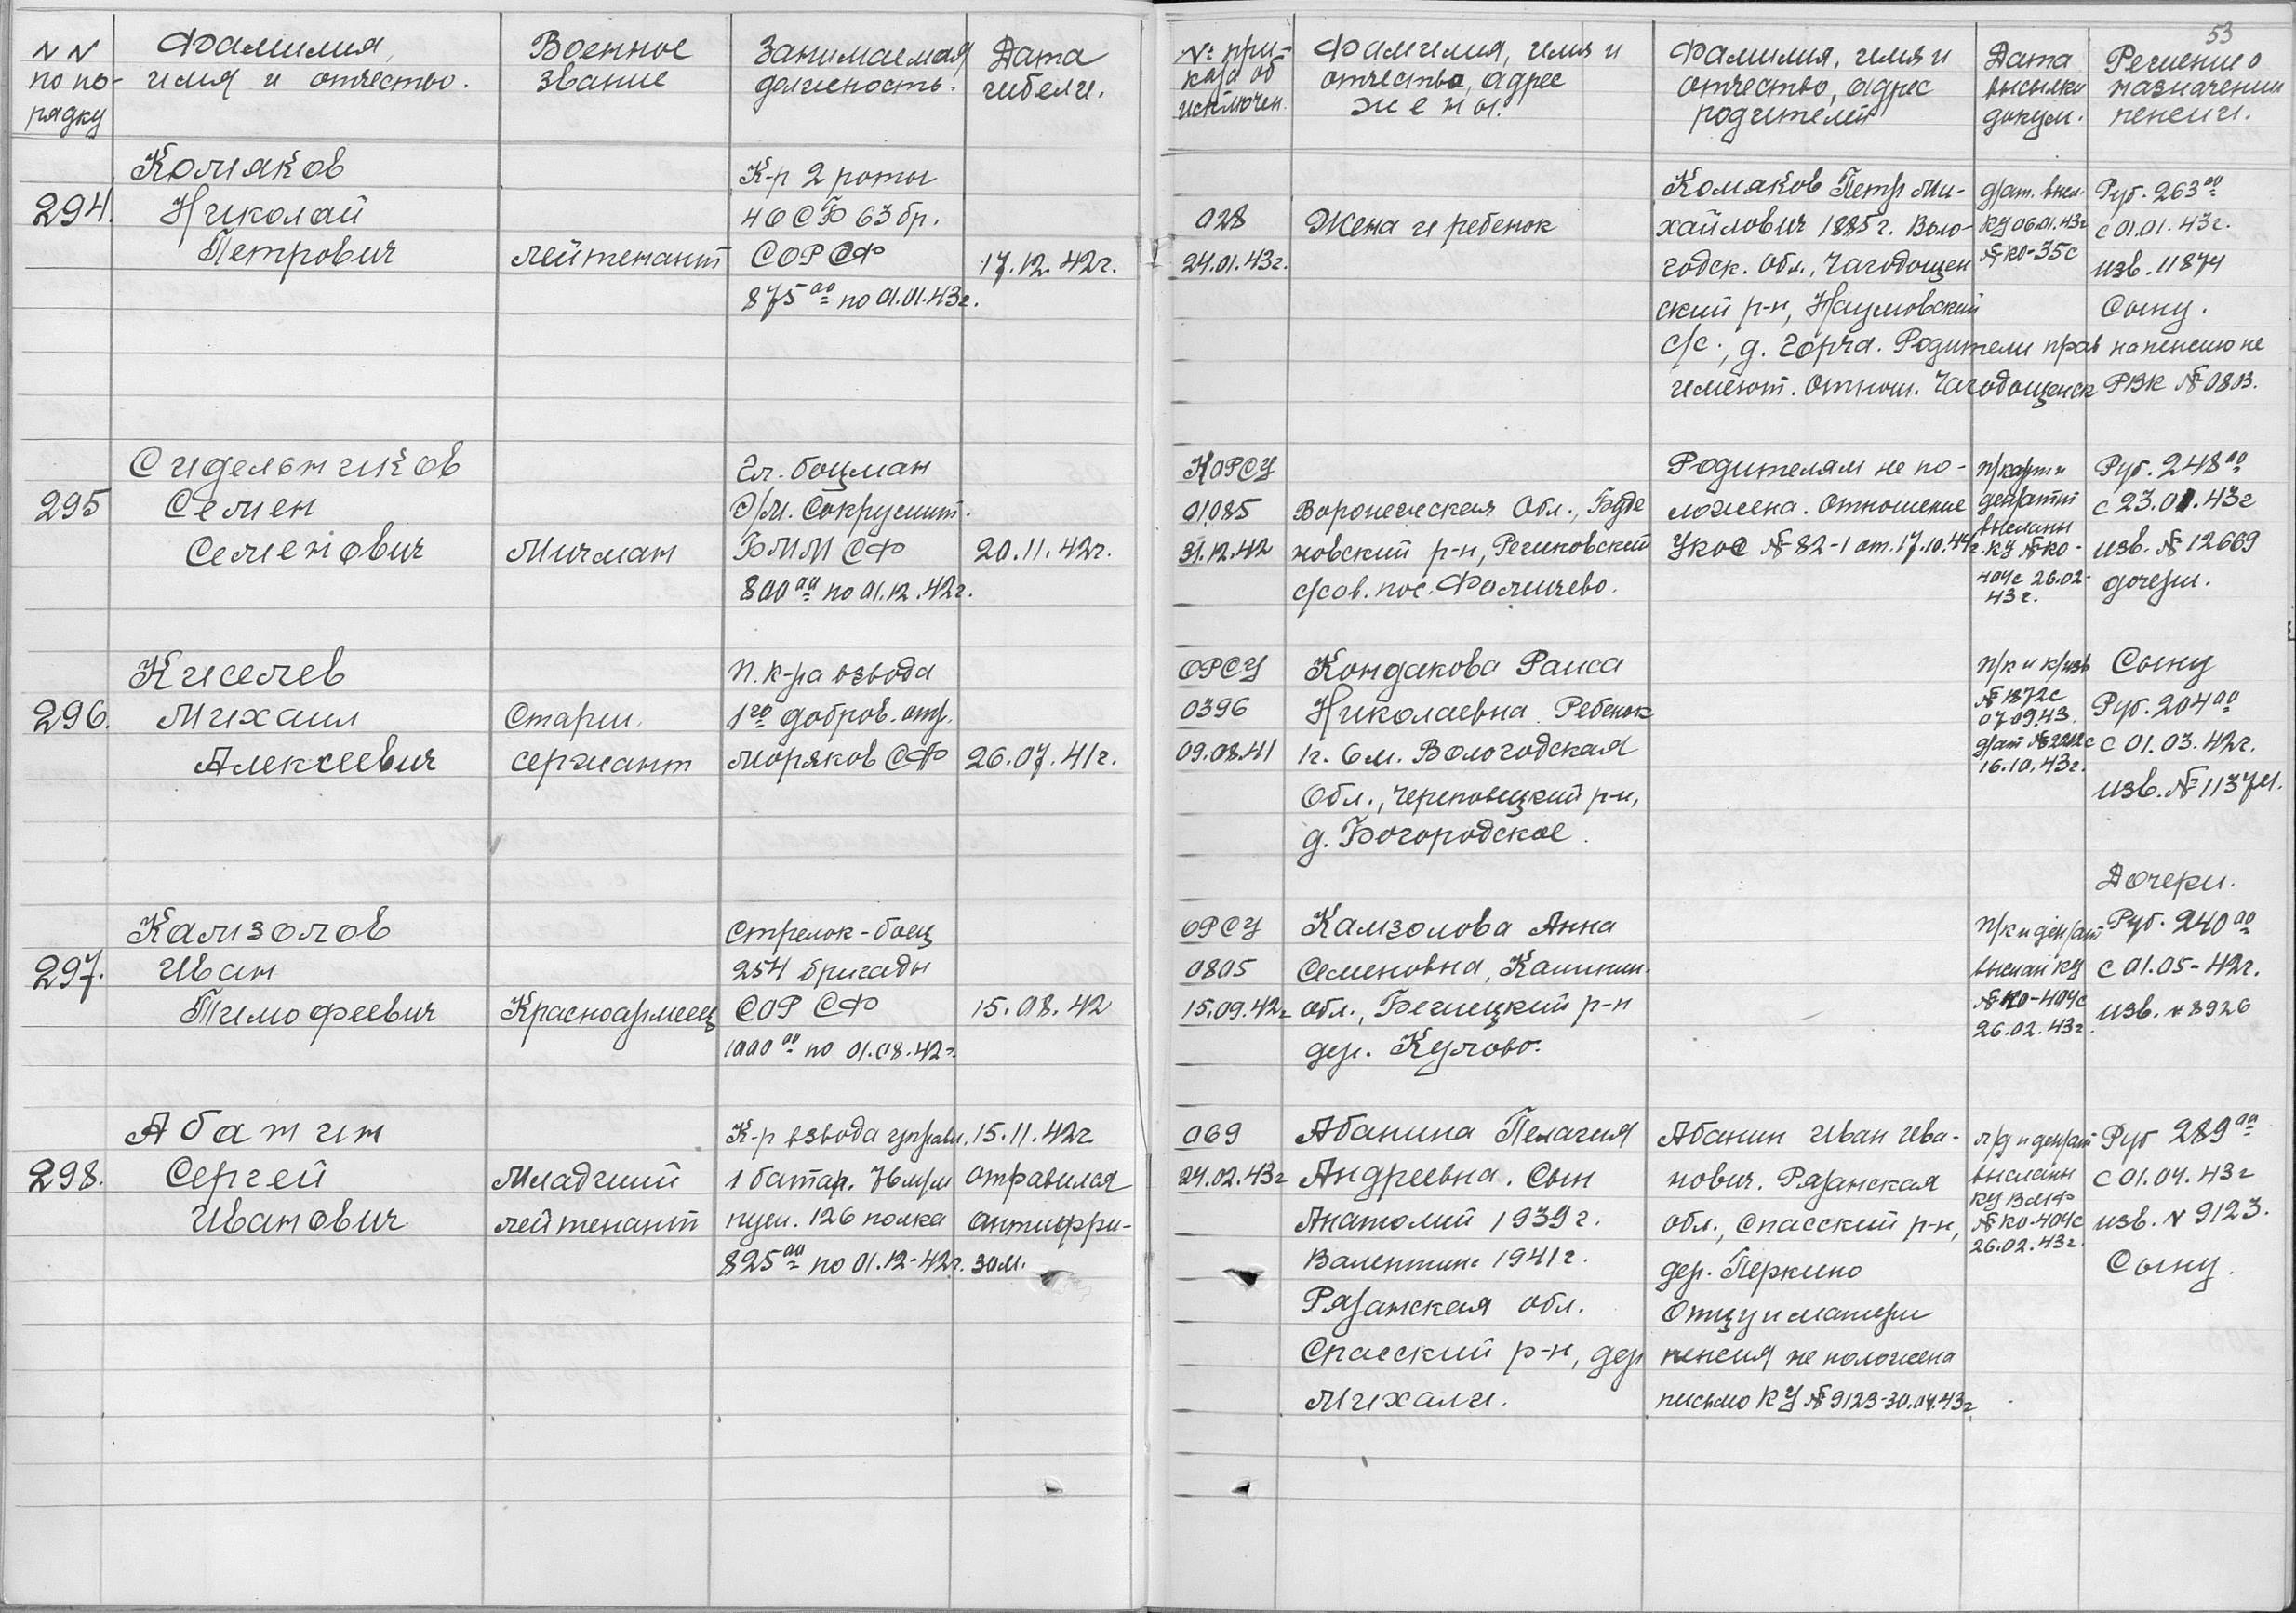 53
N N по по-рядку
Фамилия, имя и отчество.
Военное звание
Занимаемая должность.
Дата гибели.
№ при-каза об исключен.
Фамилия, имя и отчество, адрес жены.
Фамилия, имя и отчество, адрес родителей
Дата высылки докум.
Решение о назначении пенсии.
294.
Комяков
Николай
Петрович
лейтенант
К-р 2 роты
4 ОСБ 63 бр.
СОР СФ
875 00 по 01.01.43г.
17.12.42г.
028
24.01.43г.
Жена и ребенок
Комяков Петр Ми-
хайлович 1885г. Воло-
годск. Обл., Чагодощен
ский р-н, Наумовский
с/с., д. Горча. Родители прав на пенсию не
имеют. Отнош. Чагодощенск РВК № 0803.
д/ат. высл.
КУ 06.01.43г
№ КО-35с
Руб. 263 00
с 01.01.43г.
изв. 11874
Сыну.
295
Сидельников
Семен
Семенович
Мичман
Гл. боцман
Э/М. Сокрушит.
БММ СФ
800 00 по 01.12.42г.
20.11.42г.
НОРСУ
01085
31.12.42
Воронежская Обл., Буде
новский р-н, Репиковский
с/сов. пос. Фомичево.
Родителям не по-
ложена. Отношение
УКОС № 82-1 от. 17.10.44г.
высланы
КУ № КО-
404с 26.02-
43г.
Руб. 248 00
с 23.01.43г
изв. № 12669
дочери.
296.
Киселев
Михаил
Алексеевич
Старш.
сержант
п. к-ра взвода
1го добров. отр.
моряков СФ
26.07.41г.
ОРСУ
0396
09.08.41
Кондакова Раиса
Николаевна Ребенок
1г. 6м. Вологодская
Обл., Череповецкий р-н,
д. Богородское.
п/к и к/изв
№ 1872с
07.09.43.
16.10.43г.
Сыну
Руб. 204 00
с 01.03.42г.
изв. № 11374.
297.
Камзолов
Иван
Тимофеевич
Красноармеец
Стрелок-боец
254 бригады
СОР СФ
1000 00 по 01.08.42г.
15.08.42
ОРСУ
0805
15.09.42г
Камзолова Анна
Семеновна, Калинин.
обл., Бежецкий р-н
дер. Кулово.
п/к и ден/ат
выслан КУ
№ КО-404с
26.02.43г.
Дочери.
Руб. 240 00
с 01.05-42г.
изв. № 8926
298.
Абанин
Сергей
Иванович
Младший
лейтенант
К-р взвода управл.
1 батар. 76 м/м
пуш. 126 полка
825 00 по 01.12-42г.
15.11.42г.
отравился
антифри-
зом.
069
24.02.43г
Абанина Пелагия
Андреевна. Сын
Анатолий 1939г.
Валентин. 1941г.
Рязанская обл.
Спасский р-н, дер
Михали.
Абанин Иван Ива-
нович. Рязанская
обл., Спасский р-н,
дер. Перкино
Отцу и матери
пенсия не положена
письмо КУ № 9123-30.04.43г
л/д и ден/ат
высланы
КУ ВМФ
№ КО-404с
26.02.43г.
Руб 289 00
с 01.04.43г
изв. № 9123.
Сыну.